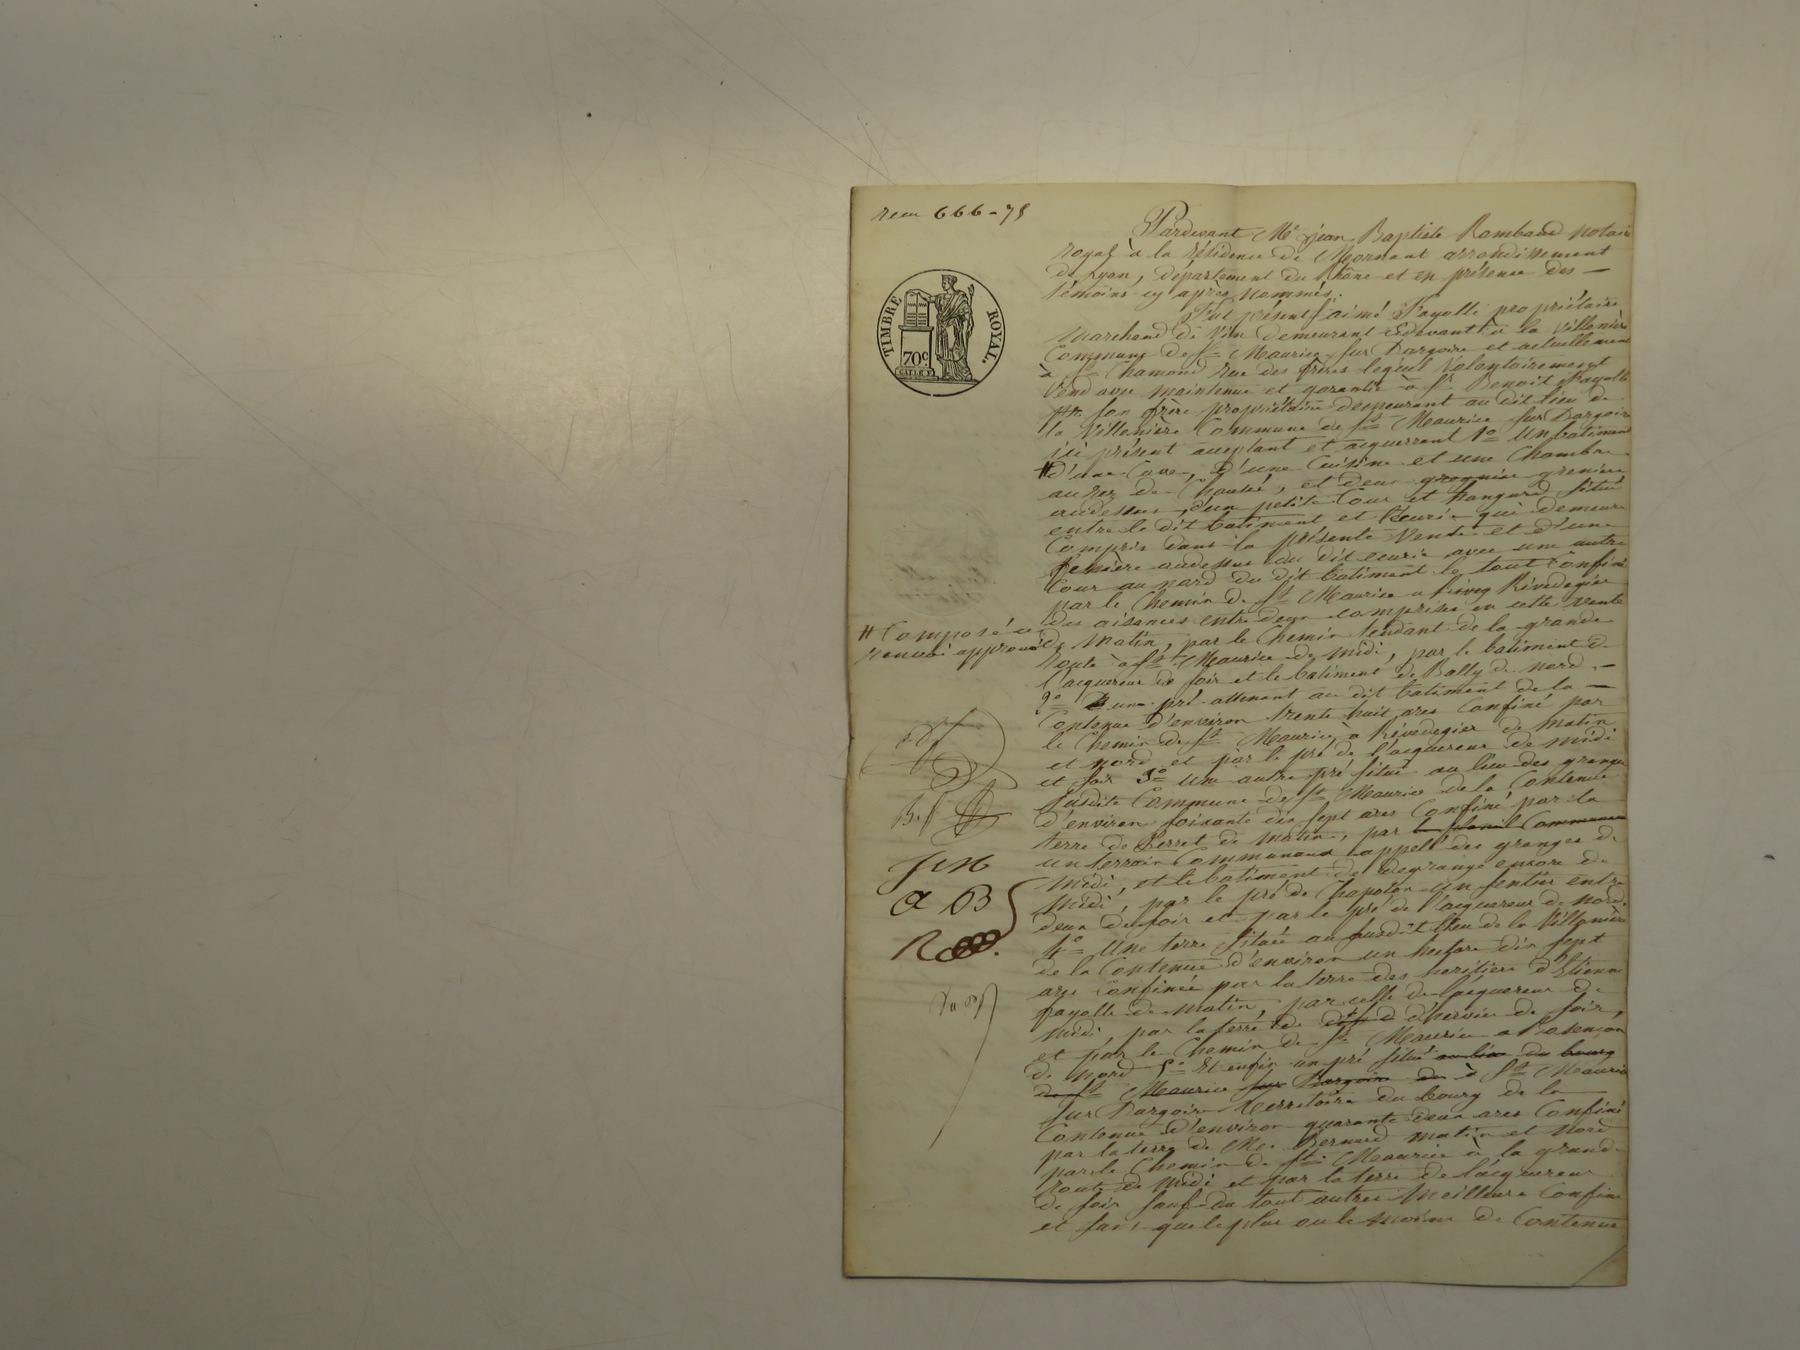 reçu 666-75
TIMBRE ROYAL.
70c.
Pardevant Me jean Baptiste Rambaud notaire
royal à la résidence de Mornant arrondissement
de Lyon, département du Rhône et en présence des —
témoins cy après nommés.
fut présent aimé Fayolle propriétaire
Marchand de Vin demeurant cidevant à la Villonière
Commune de St Maurice Sur Dargoire et actuellement
à St Chamond rue des frères lequel Volontairement
Vend avec maintenue et garantie à Sr Benoit Fayolle
son frère propriétaire demeurant au dit lieu de
la Villonière Commune de St Maurice sur Dargoire
ici présent acceptant et acquerrant 1o Un batiment
# d'une Cave, d'une Cuisine et une Chambre
au rez de Chaussé, et deux greniers
audessus, d'une petite Cour et hangard situé
entre le dit batiment et Ecurie qui demeure
Compris dans la présente Vente et d'une
fenière audessus du dit ecurie avec une autre
Cour au nord du dit batiment le tout Confiné
par le Chemin de St Maurice a Rivedegier
des aisances entredeux comprises en cette vente
# Composé ce
renvoi approuvé
de Matin, par le Chemin tendant de la grande
route à St Maurice de midi, par le batiment de
l'acquereur de soir et le batiment de Bally de nord —
2o un pré attenant au dit batiment de la —
Contenue d'environ trente huit ares Confiné par
le Chemin de St Maurice à Rivedegier de matin
et nord et par le pré de l'acquereur de midi
et soir 3o un autre pré situé au lieu des granges
susdite Commune de St Maurice de la Contenue
d'environ soixante dix sept ares Confiné par la
terre de Perret de matin, par
un terrain Communaux appellé des granges de
midi, et le batiment de Degrange encore de
midi, par le pré de Chapoton un sentier entre
deux de soir et par le pré de l'acquereur de nord.
J M
a B
R
4o Une terre située au susdit lieu de la Villonière
de la Contenue d'environ un hectare dix sept
ares Confinée par la terre des heritiers d'Etienne
fayolle de matin, par celle de l'acquereur de
midi, par la terre de d'hervier de soir,
et par le Chemin de St Maurice a
de nord 5o Et enfin un pré situé au lieu du bourg
de St Maurice sur Dargoire à St Maurice
sur Dargoire territoire du bourg de la
Contenue d'environ quarante deux ares Confiné
par la terre de Me Bernard matin et nord
par le Chemin de St Maurice à la grande
route de midi et par la terre de l'acquereur
de soir sauf du tout autres Meilleurs Confins
et sans que le plus ou le moins de Contenue